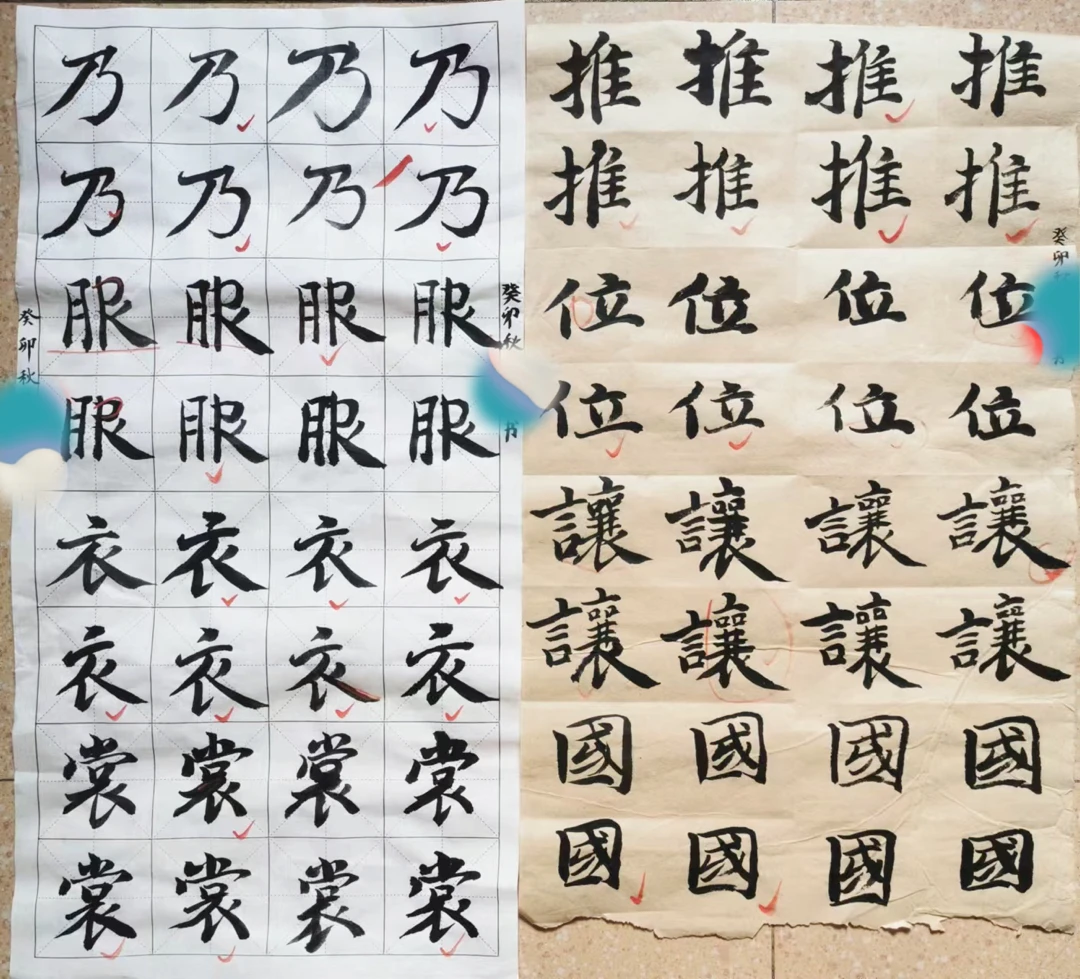 乃乃乃乃
乃乃乃乃
服服服服
服服服服
衣衣衣衣
衣衣衣衣
裳裳裳裳
裳裳裳裳
癸卯秋
癸卯秋
书
推推推推
推推推推
位位位位
位位位位
讓讓讓讓
讓讓讓讓
國國國國
國國國國
癸卯